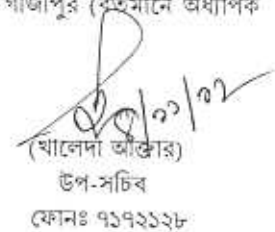 গাজীপুর (বর্তমানে অধ্যাপক
(খালেদা আক্তার)
উপ-সচিব
ফোনঃ ৭১৭২১২৮